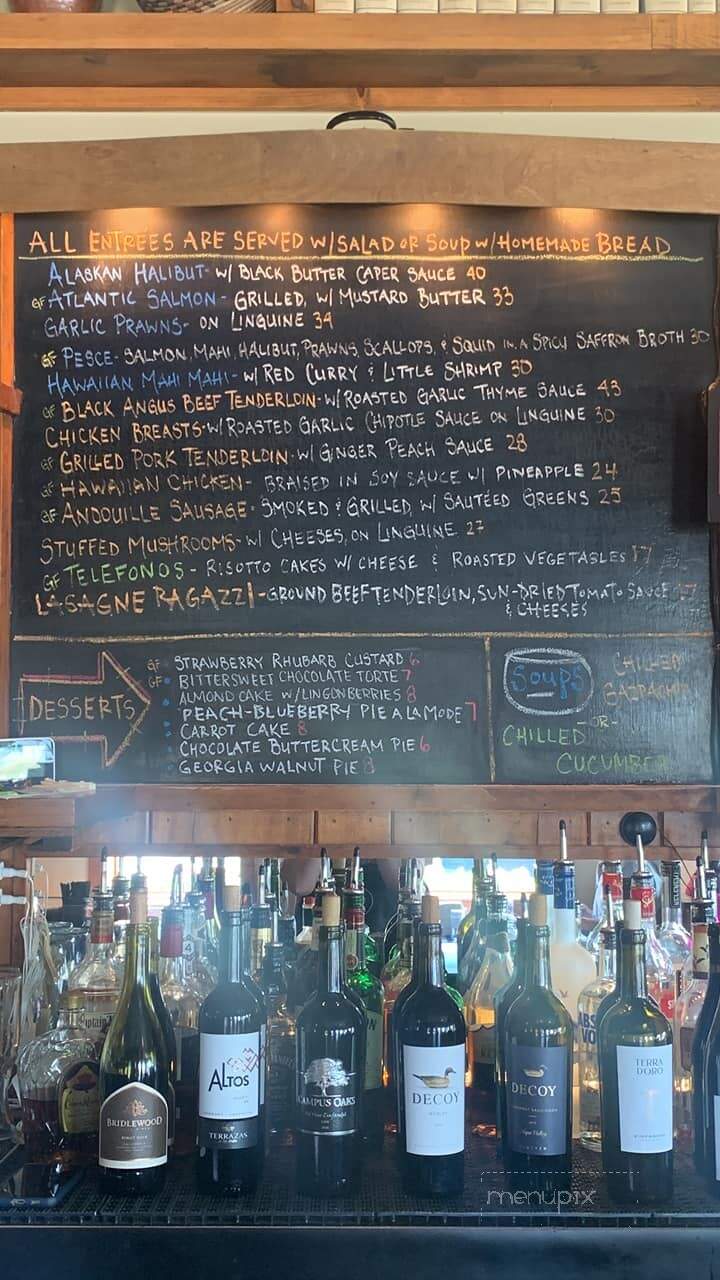 ALL ENTREES ARE SERVED W/SALAD OR SOUP W/HOMEMADE BREAD
ALASKAN HALIBUT- W/ BLACK BUTTER CAPER SAUCE 40
GF ATLANTIC SALMON - GRILLED, W/ MUSTARD BUTTER 33
GARLIC PRAWNS- ON LINGUINE 34
GF PESCE- SALMON, MAHI, HALIBUT, PRAWNS, SCALLOPS, & SQUID IN A SPICY SAFFRON BROTH 30
HAWAIIAN MAHI MAHI- W/ RED CURRY & LITTLE SHRIMP 30
GF BLACK ANGUS BEEF TENDERLOIN- W/ROASTED GARLIC THYME SAUCE 43
CHICKEN BREASTS-W/ROASTED GARLIC CHIPOTLE SAUCE ON LINGUINE 30
GF GRILLED PORK TENDERLOIN- W/ GINGER PEACH SAUCE 28
GF HAWAIIAN CHICKEN- BRAISED IN SOY SAUCE W/ PINEAPPLE 24
GF ANDOUILLE SAUSAGE- SMOKED & GRILLED, W/ SAUTÉED GREENS 25
STUFFED MUSHROOMS- W/ CHEESES, ON LINGUINE 27
GF TELEFONOS - RISOTTO CAKES W/ CHEESE & ROASTED VEGETABLES 17
LASAGNE RAGAZZI-GROUND BEEF TENDERLOIN, SUN-DRIED TOMATO SAUCE
& CHEESES
DESSERTS
GF STRAWBERRY RHUBARB CUSTARD 6
GF BITTERSWEET CHOCOLATE TORTE 7
ALMOND CAKE W/LINGONBERRIES 8
PEACH-BLUEBERRY PIE A LA MODE 7
CARROT CAKE 8
CHOCOLATE BUTTERCREAM PIE 6
GEORGIA WALNUT PIE 8
SOUPS
CHILLED
GAZPACHO
-OR-
CHILLED
CUCUMBER
BRIDLEWOOD
PINOT NOIR
ALTOS
TERRAZAS
CAMPUS OAKS
DECOY
MERLOT
DECOY
TERRA
D'ORO
menupix